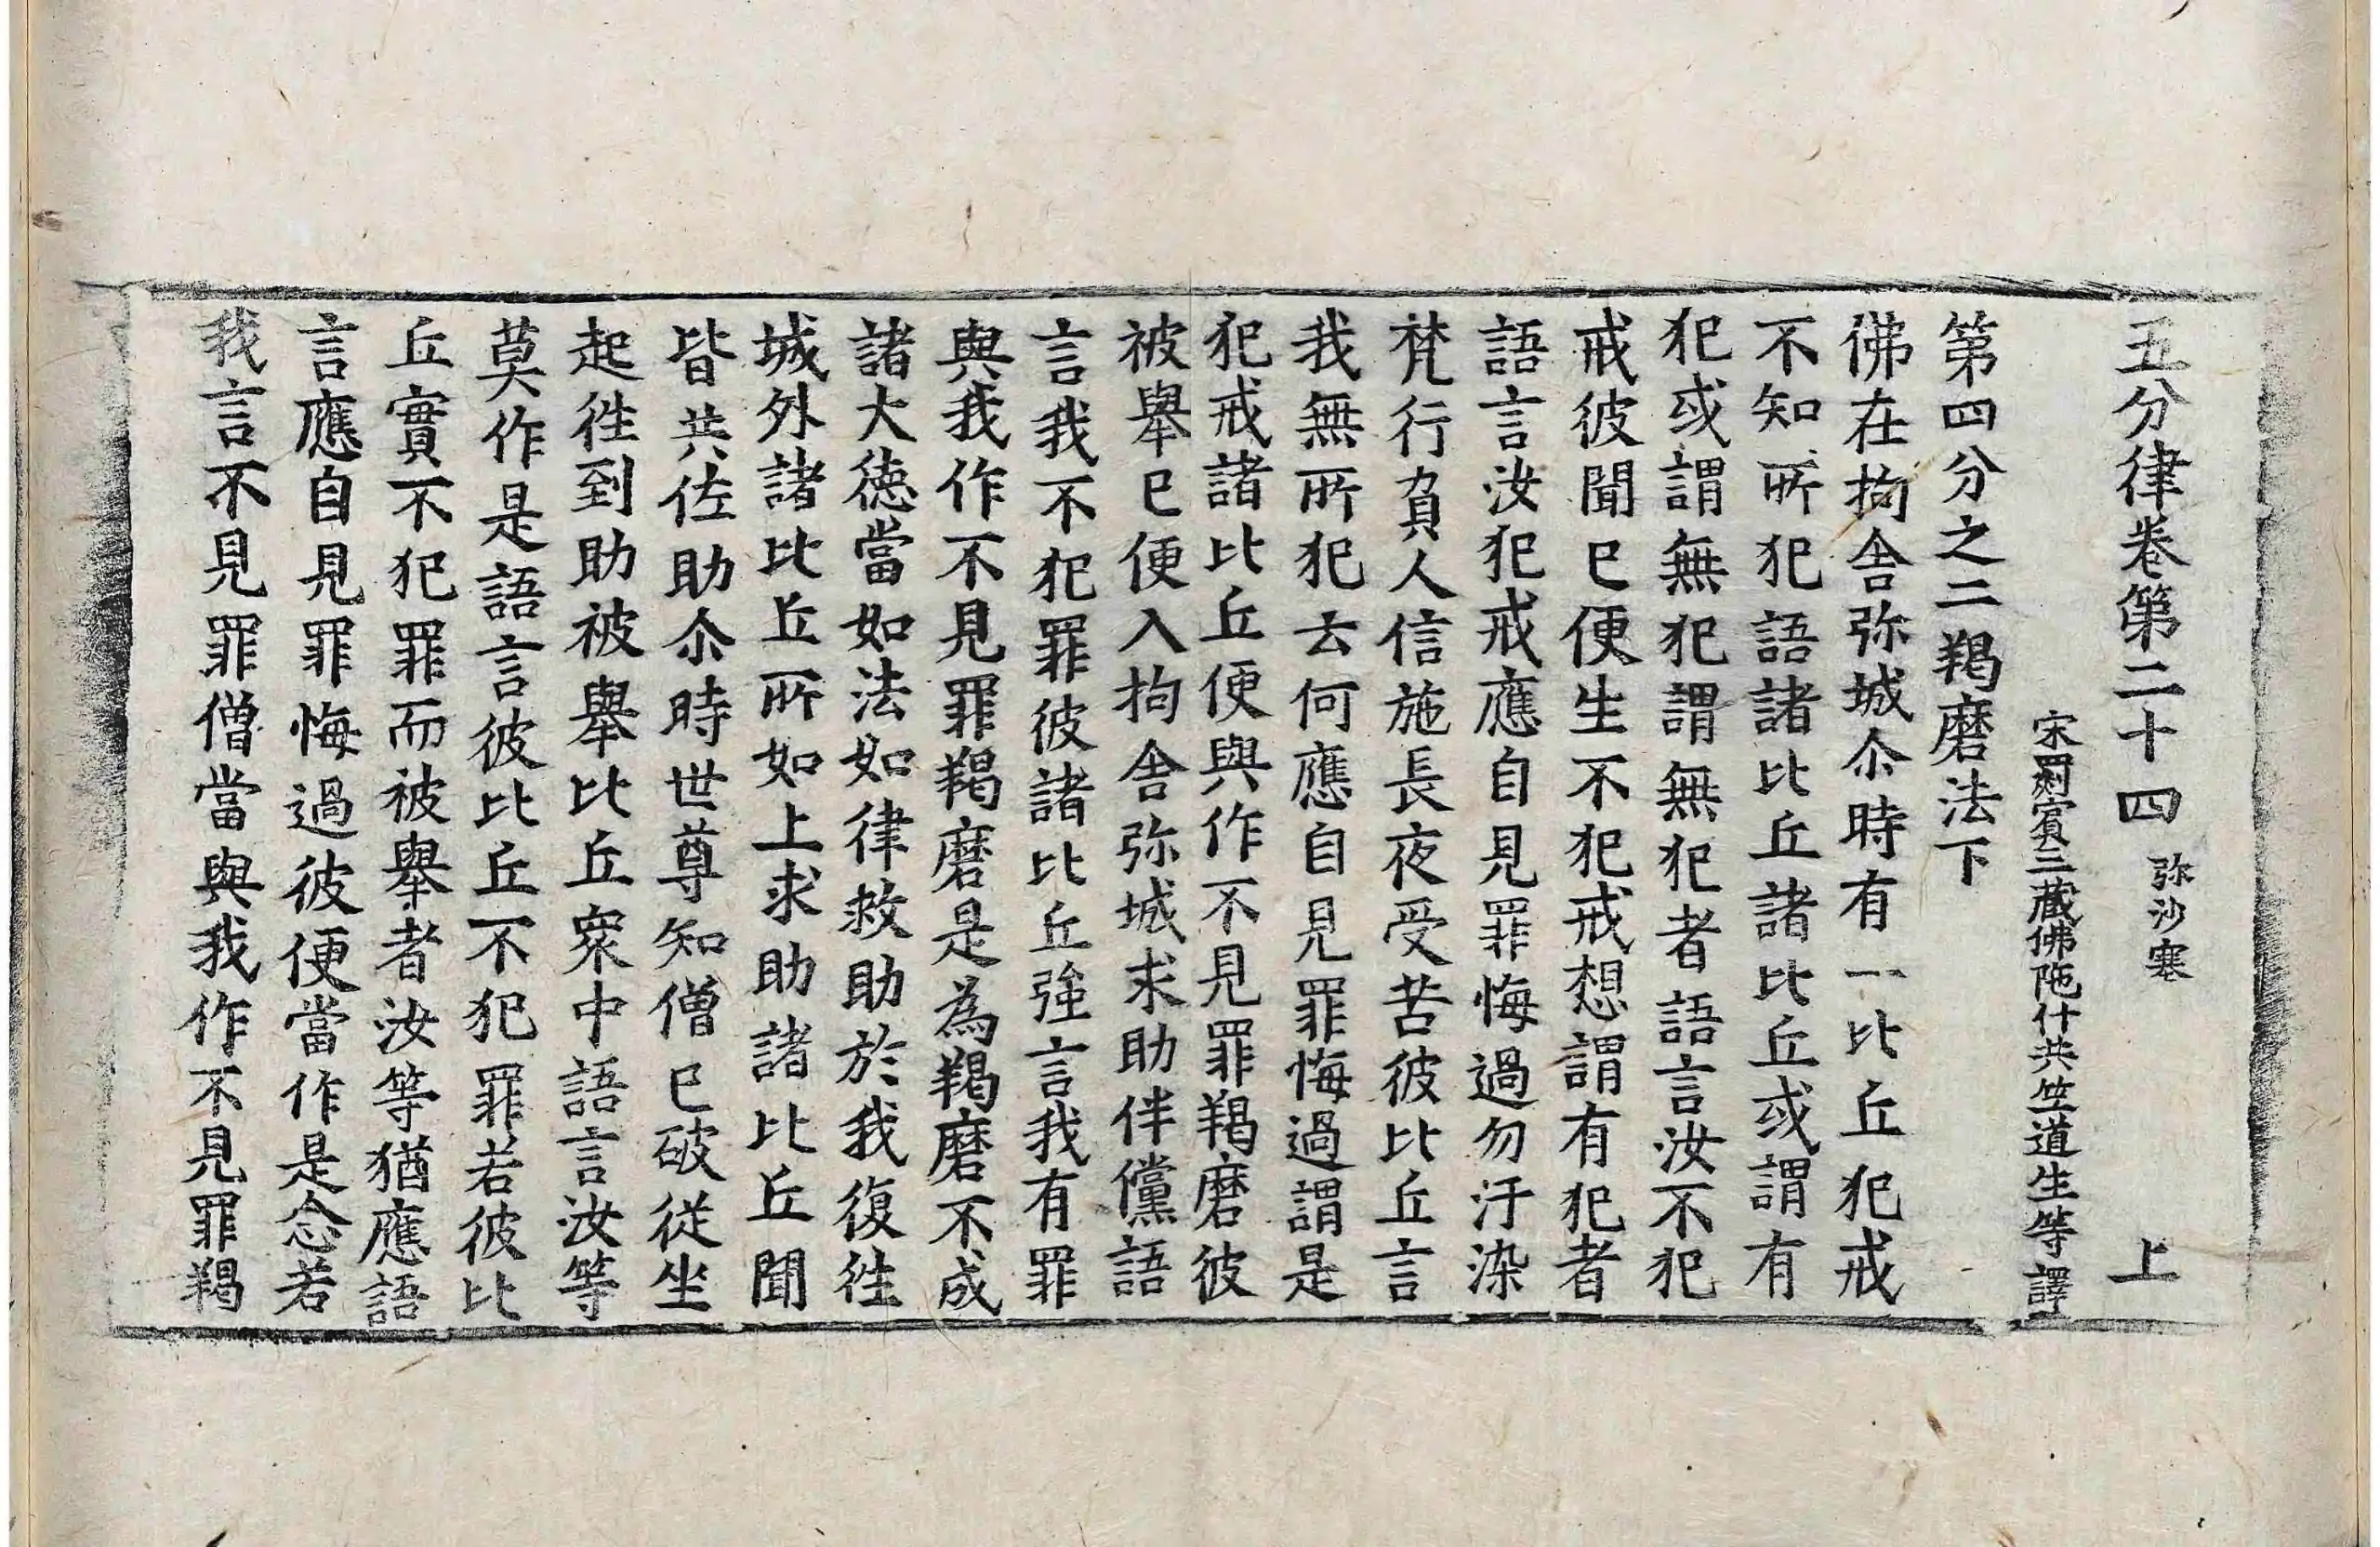 五分律卷第二十四 弥沙塞 上
宋罽賓三藏佛陁什共竺道生等譯
第四分之二羯磨法下
佛在拘舍弥城尒時有一比丘犯戒
不知所犯語諸比丘諸比丘或謂有
犯或謂無犯謂無犯者語言汝不犯
戒彼聞已便生不犯戒想謂有犯者
語言汝犯戒應自見罪悔過勿汙染
梵行負人信施長夜受苦彼比丘言
我無所犯云何應自見罪悔過謂是
犯戒諸比丘便與作不見罪羯磨彼
被舉已便入拘舍弥城求助伴儻語
言我不犯罪彼諸比丘強言我有罪
與我作不見罪羯磨是為羯磨不成
諸大徳當如法如律救助於我復徃
城外諸比丘所如上求助諸比丘聞
皆共佐助尒時世尊知僧已破從坐
起徃到助被舉比丘衆中語言汝等
莫作是語言彼比丘不犯罪若彼比
丘實不犯罪而被舉者汝等猶應語
言應自見罪悔過彼便當作是念若
我言不見罪僧當與我作不見罪羯